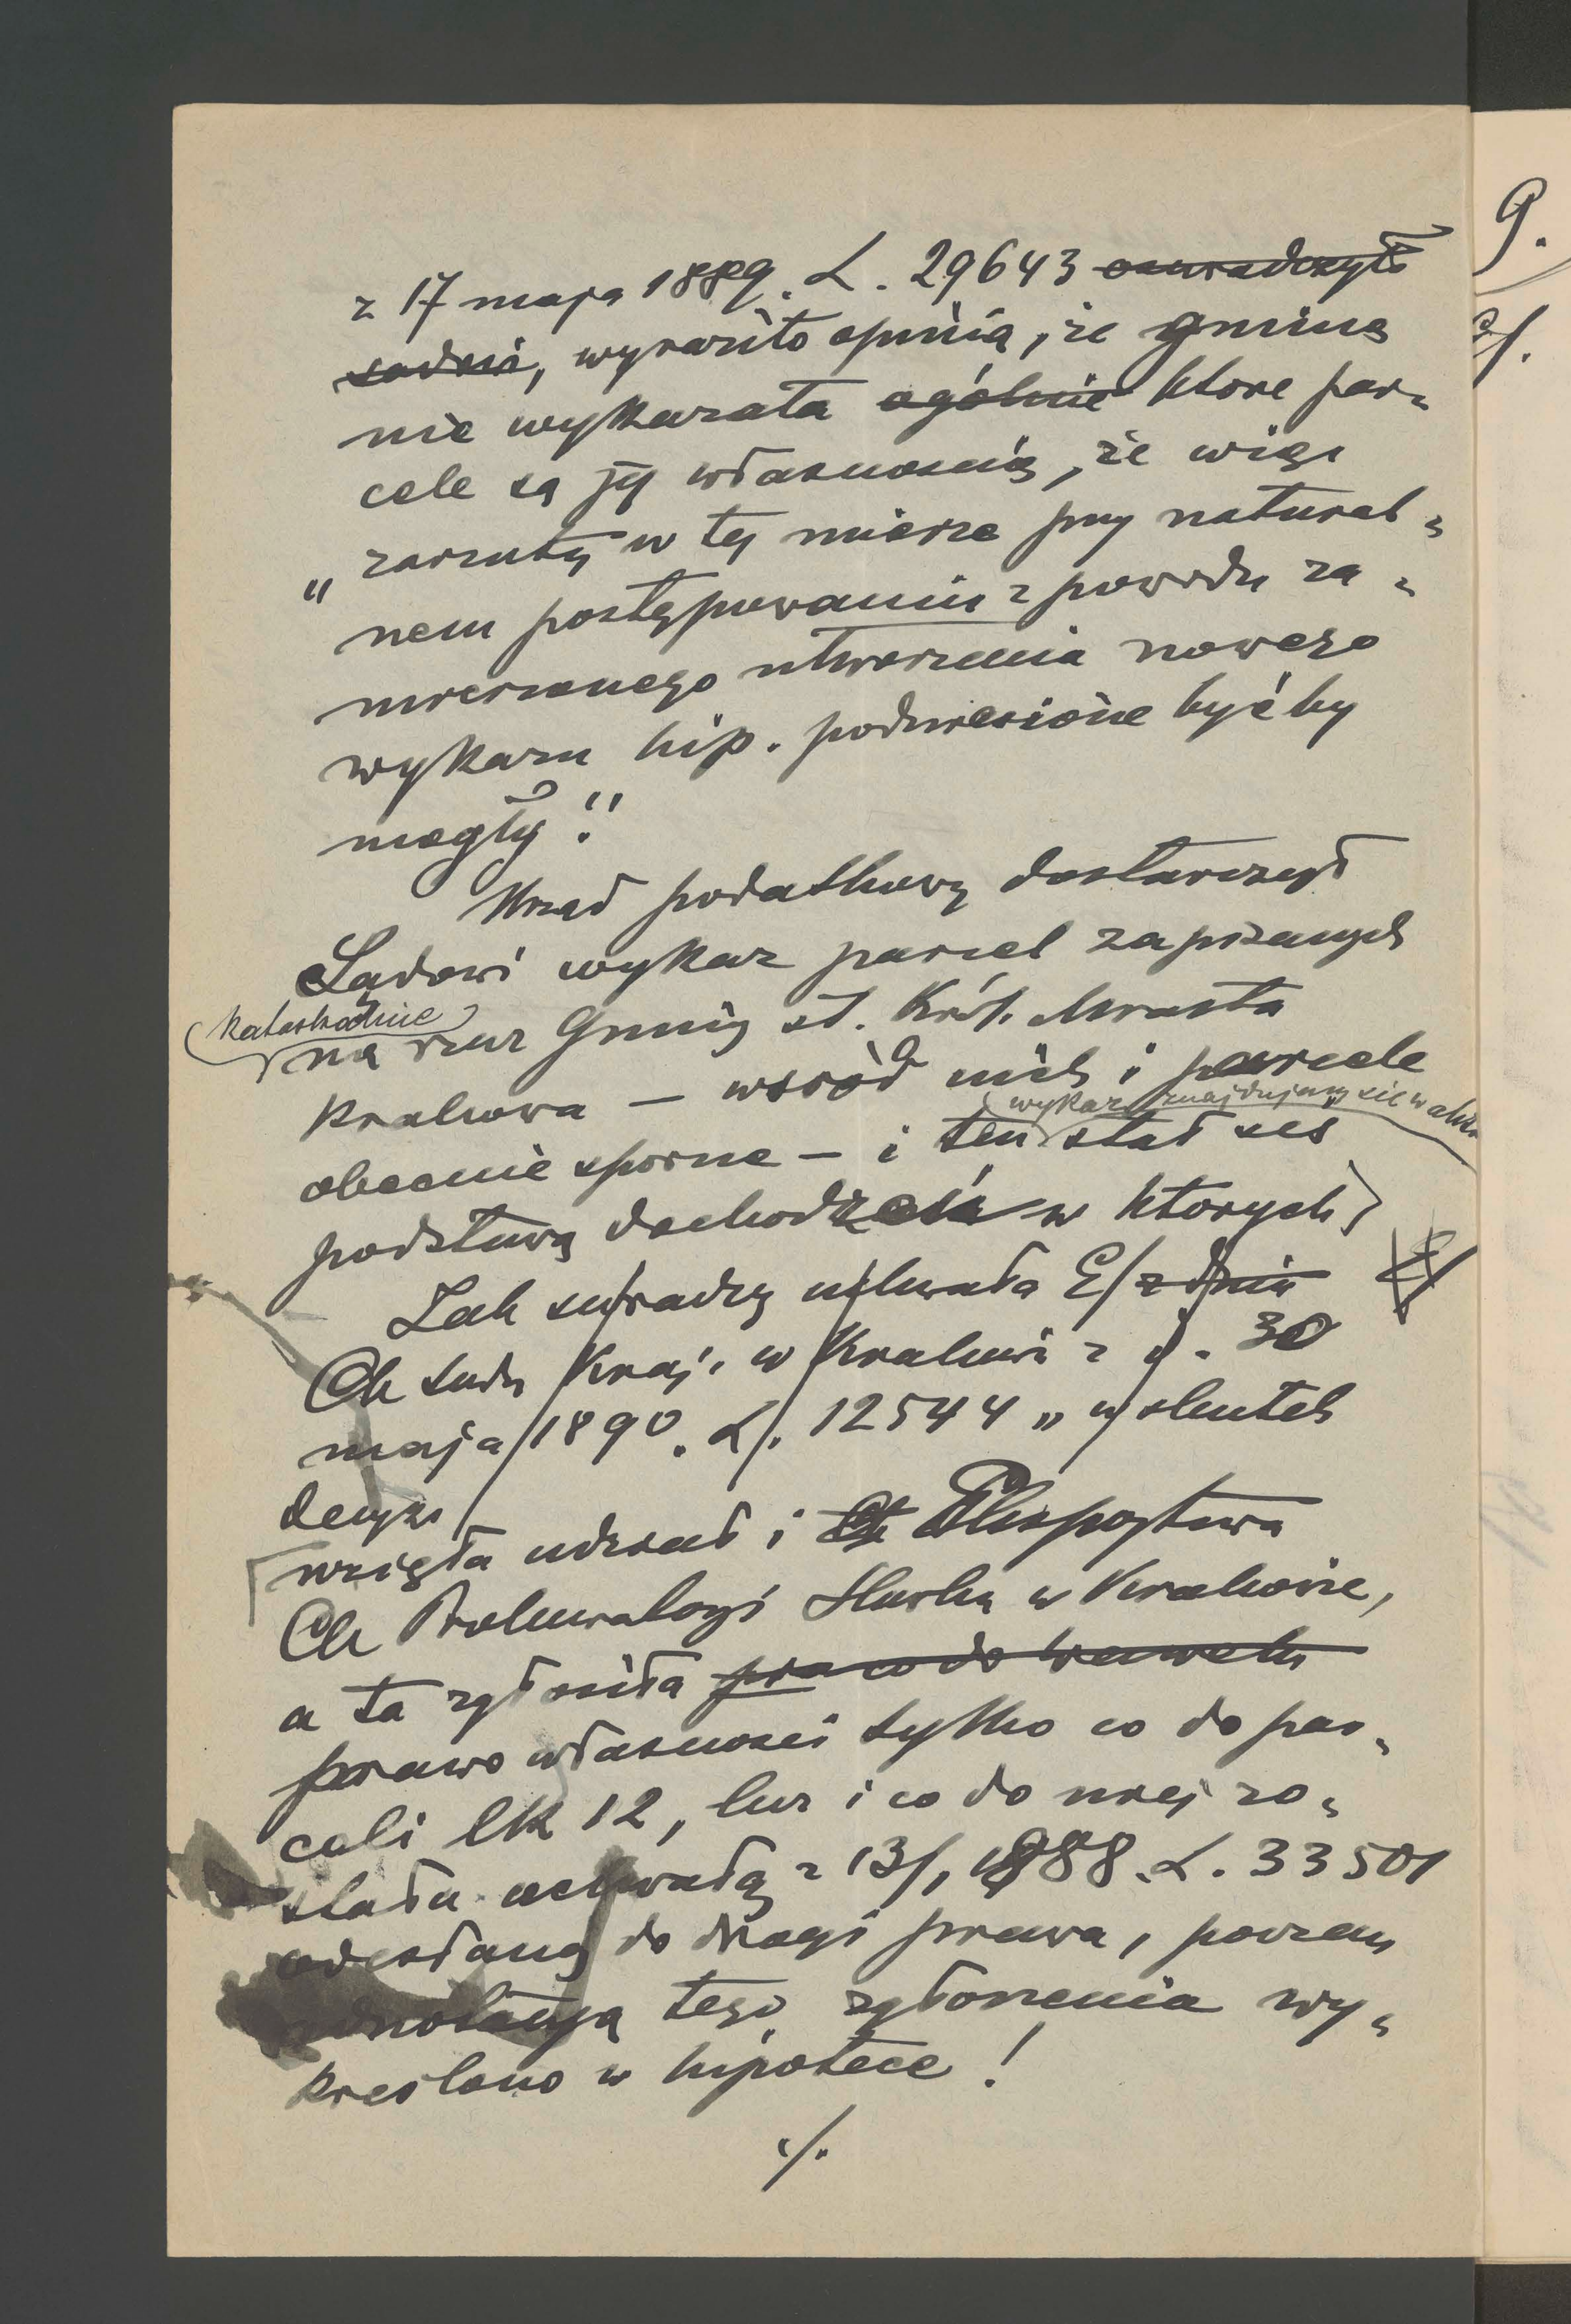 z 17 maja 1889. L. 29643 oświadczyło
sądowi, wyraziło opinią, że gmina
nie wykazała ogólnie które par„
cele są jej własnością, że więc
„zarzuty w tej mierze przy natural„
nem postępowaniu z powodu za„
mierzonego utworzenia nowego
wykazu hip. podniesione być by
mogły."
Urząd podatkowy dostarczył
Sądowi wykaz parcel zapisanych
katastralnie
na rzecz Gminy st. Król. Miasta
Krakowa — wśród nich i parcele
wykaz znajdujący się w aktach
obecnie sporne — i ten stał się
podstawą dochodzeń w których
Jak świadczy uchwała C/ z dnia
Ck Sądu Kraj. w Krakowie z d. 30
maja 1890. L. 12544 „w skutek
decyzi
wzięła udział i Ck Ekspozytura
Ck Prokuratoryi Skarbu w Krakowie,
a ta zgłosiła prawo do Wawelu
prawo własności tylko co do par„
celi lk 12, lecz i co do niej zo„
stała uchwałą z 13/1 1888 L. 33501
odesłaną do drogi prawa, poczem
adnotacyą tego zgłoszenia wy„
kreślono w hipotece!
./.
9.